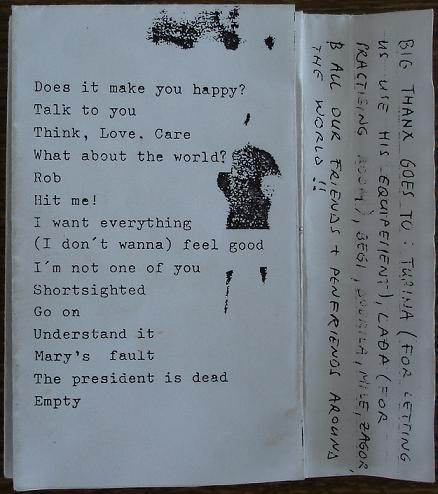 Does it make you happy?
Talk to you
Think, Love. Care
What about the world?
Rob
Hit me!
I want everything
(I don´t wanna) feel good
I´m not one of you
Shortsighted
Go on
Understand it
Mary's fault
The president is dead
Empty
BIG THANX GOES TO: TURINA (FOR LETTING
US USE HIS EQUIPEMENT), LADA (FOR
PRACTISING ROOM), BEGI, MILE, ZAGOR,
B ALL OUR FRIENDS + PENFRIENDS AROUND
THE WORLD!!